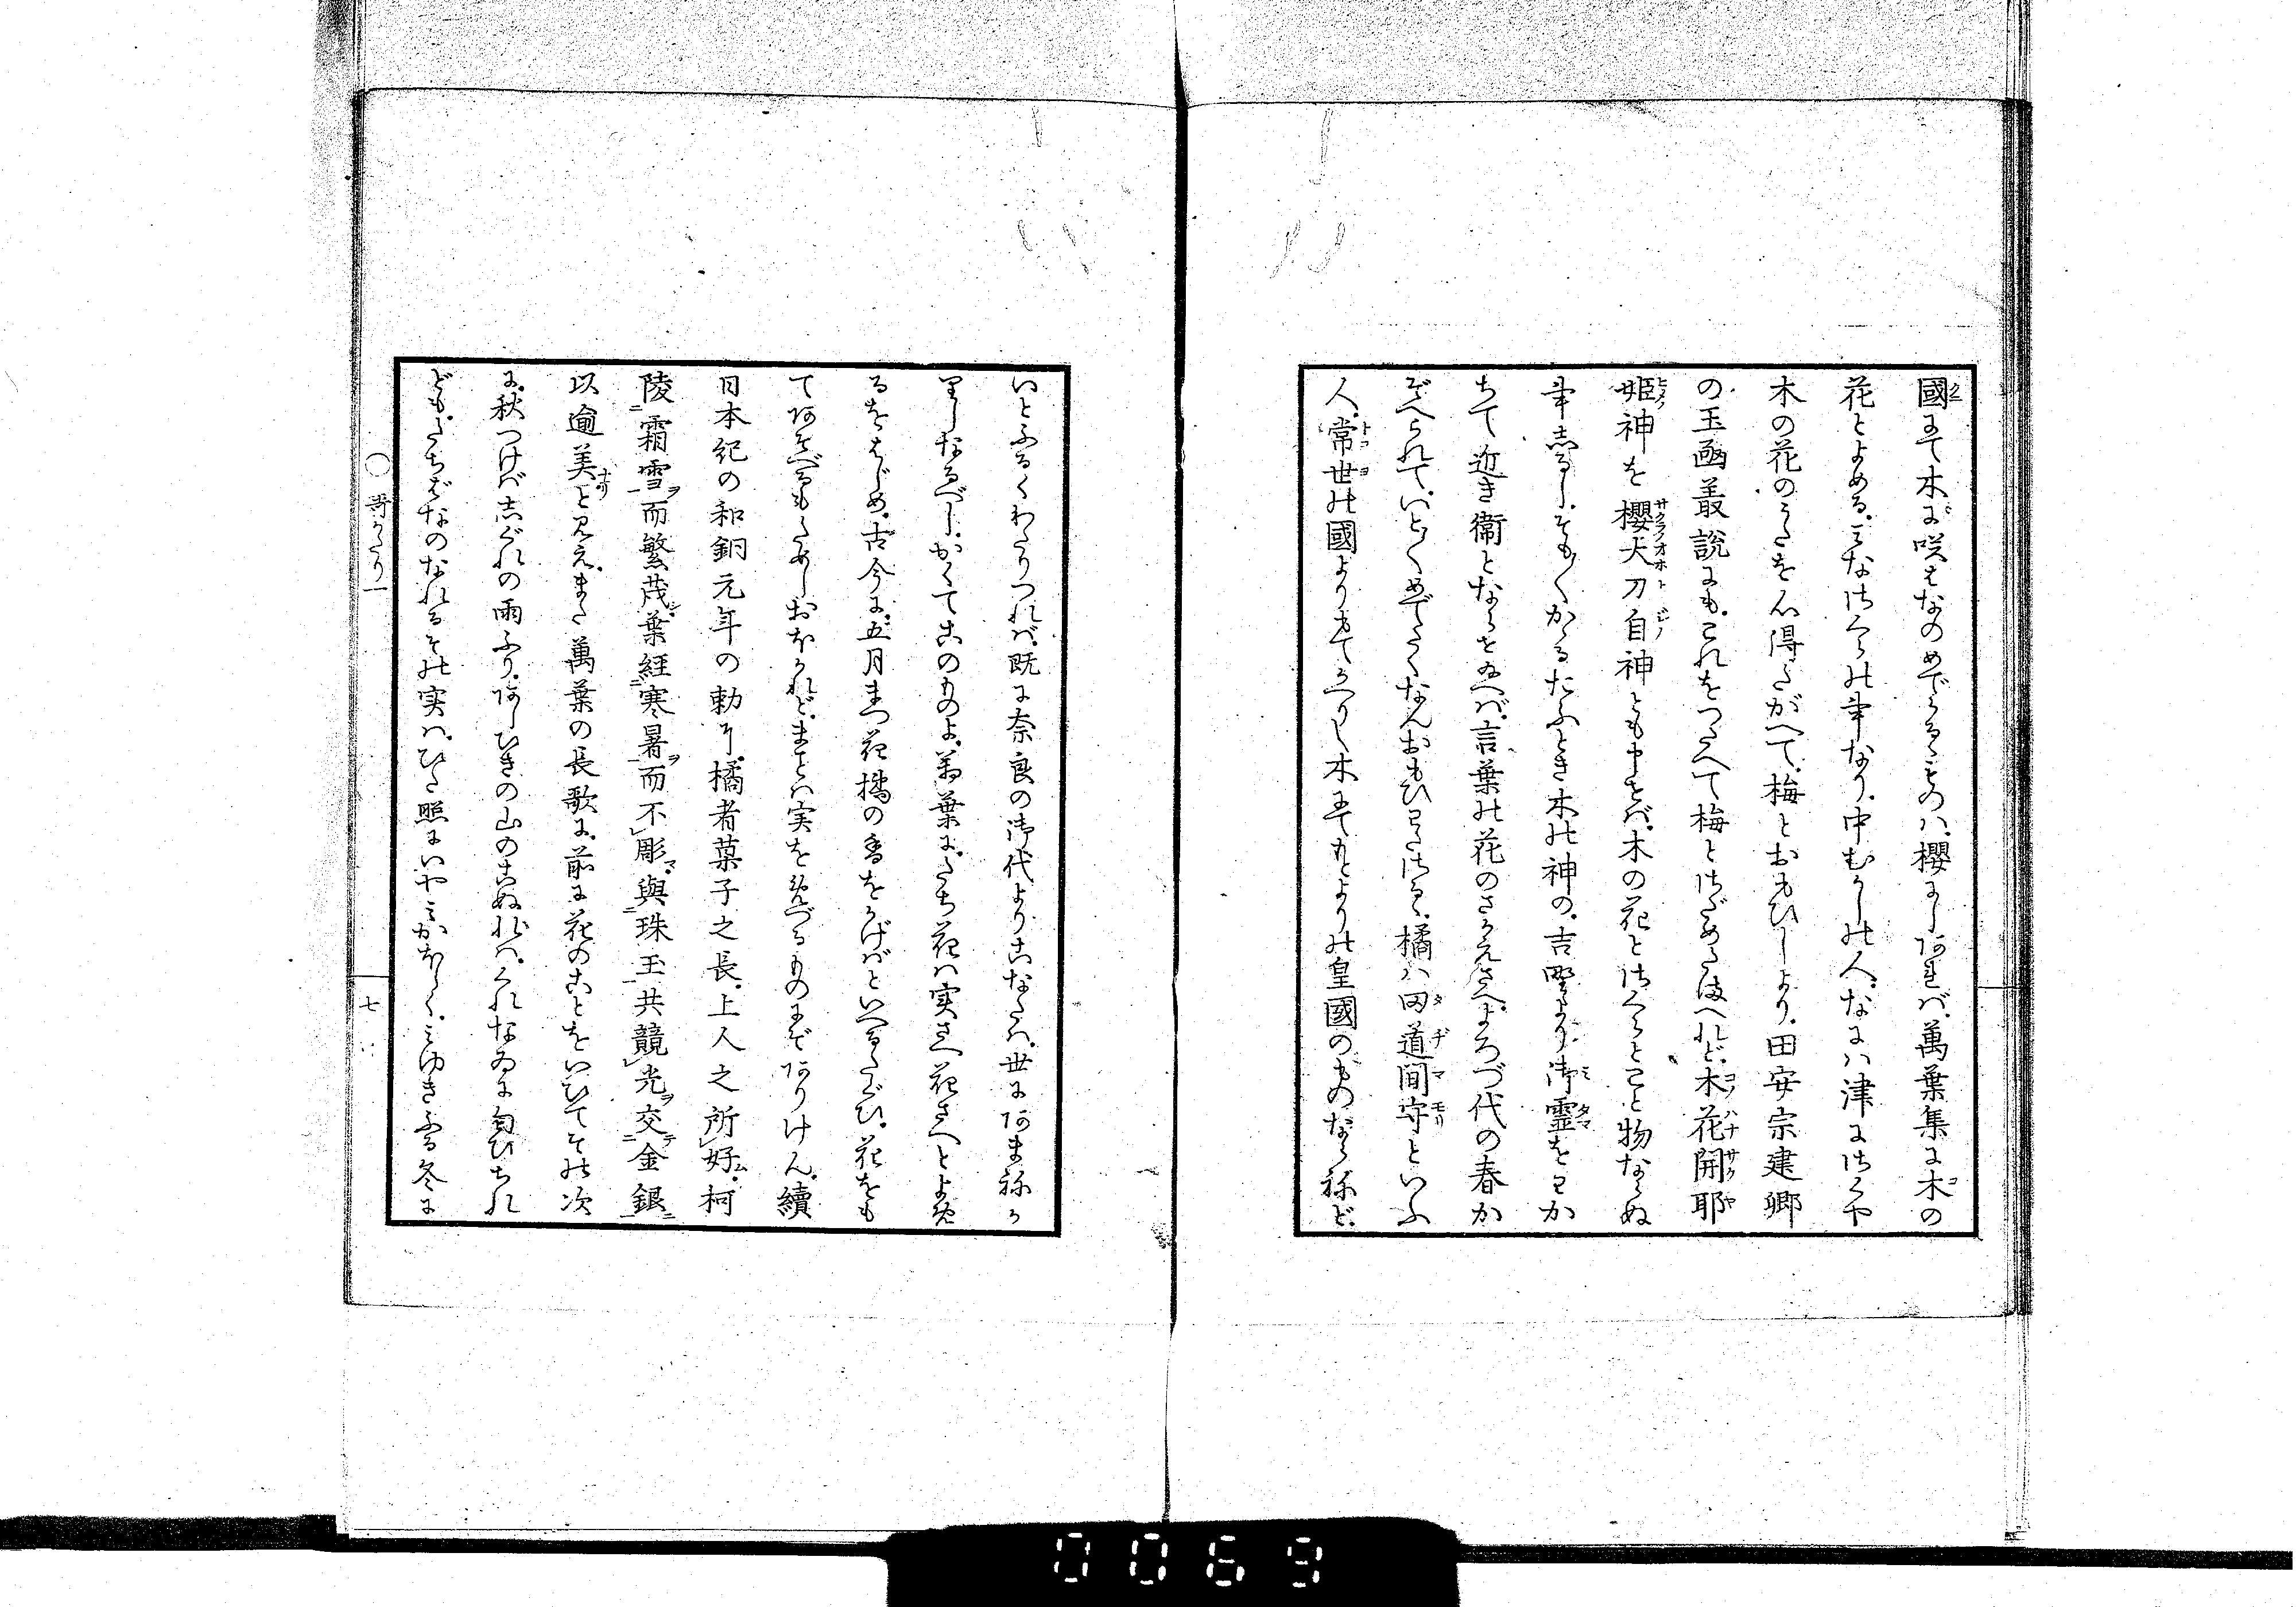 國にて木に咲はなのめでたきものハ、櫻にしあれバ、萬葉集に木の
花とよめる、ミなさくらの事なり、中むかしの人、なにハ津にさくや
木の花のうたを心得たがへて、梅とおもひしより、田安宗建卿
の玉凾叢説にも、これをつたへて梅とさだめたまへれど、木花開耶
姫神を櫻大刀自神とも申せバ、木の花とさくらとこと物ならぬ
事志るし、そも〳〵かゝるたふとき木の神の、吉野より御霊をわか
ちて近き衛とならせ給へバ、言葉の花のさかえさへ、よろづ代の春か
ぞへられて、いと〳〵めでたくなんおもひわたさるゝ、橘ハ田道間守といふ
人、常世の國よりもてかへりし木にてもとよりの皇國のものならねど、
いとふるくわたりつれバ、既に奈良の御代よりこなたハ、世にあまねか
りしなるべし、かくてこのものよ、萬葉に、たち花ハ実さへ花さへとよめ
るをはじめ、古今に、五月まつ花橘の香をかげバといへるたぐひ、花をも
てあそべるもためしおほかれど、まとハ実をめづるものにぞありけん、續
日本紀の和銅元年の勅に、橘者菓子之長、上人之所好、柯
陵霜雪而繁茂葉経寒暑而不彫、與珠玉共競光交金銀
以逾美と見え、また萬葉の長歌に、前に花のことをいひてその次
に、秋つけバ志ぐれの雨ふり、あしひきの山のこぬれハ、くれなゐに匂ひちれ
ども、たちばなのなれるその実ハ、ひた照にいやミがほしく、ミゆきふる冬に
○哥かたり一
七
0069